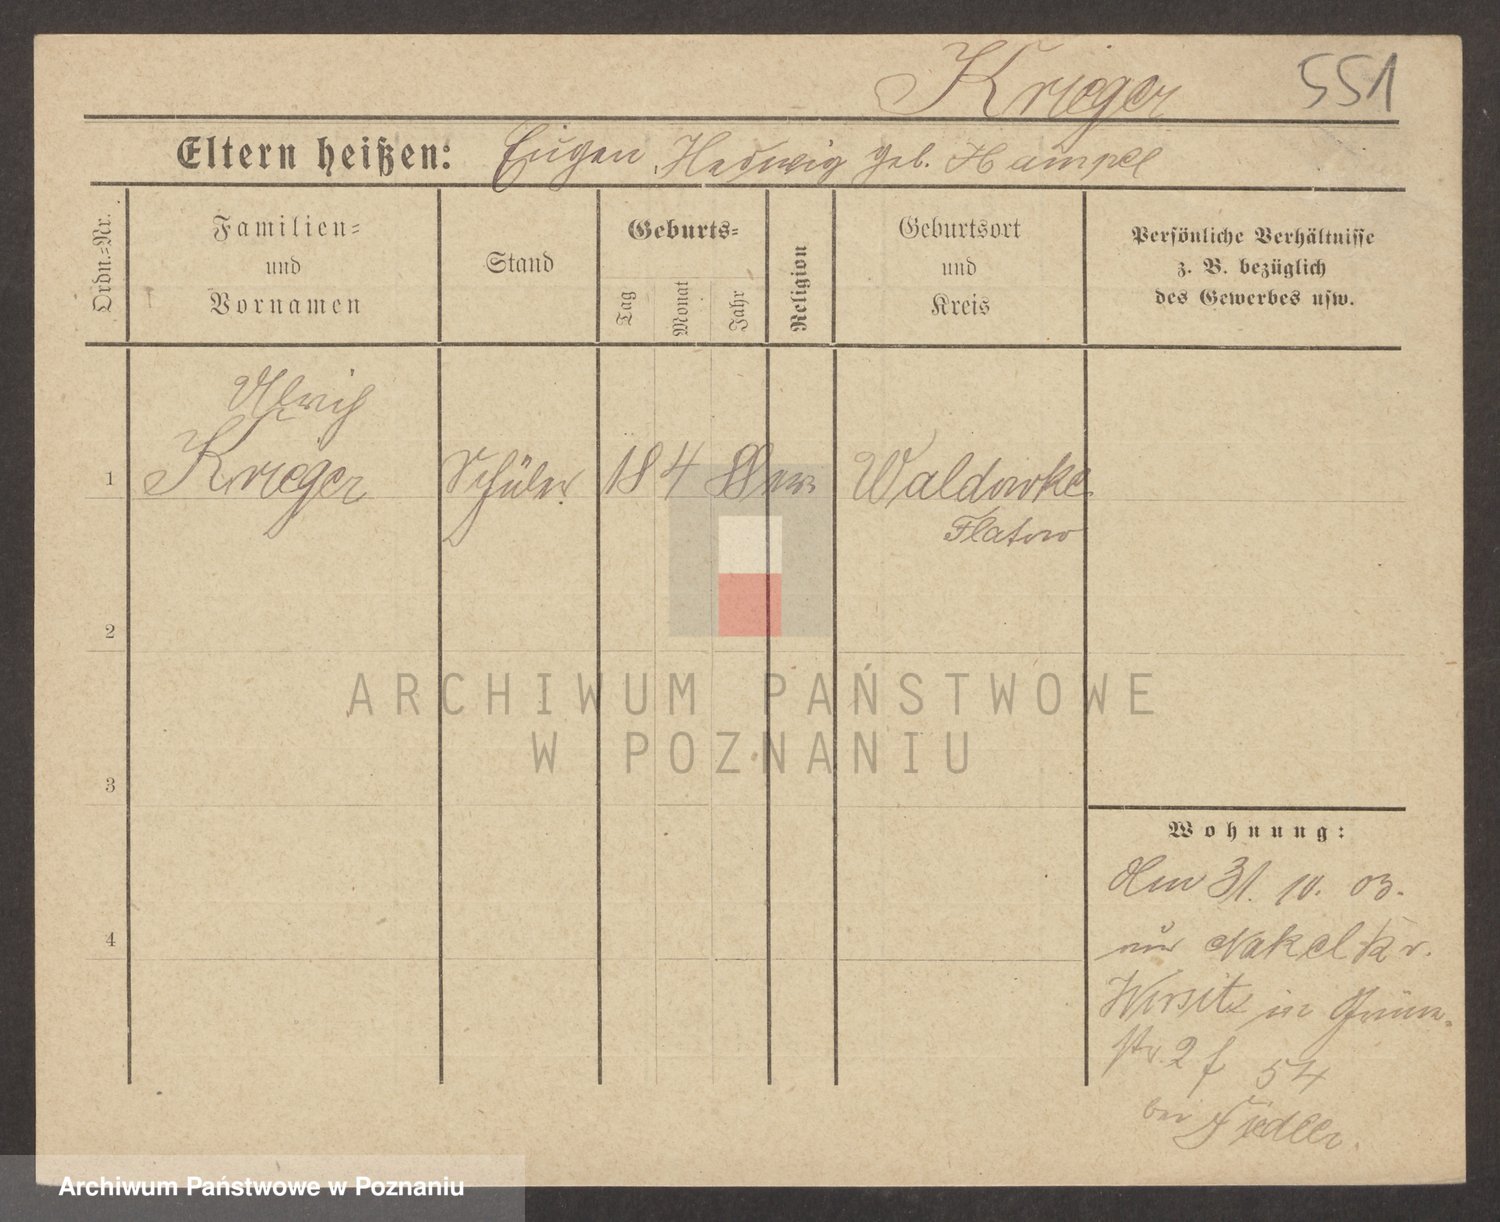 Krieger 551
Eltern heißen: Eugen, Hedwig geb. Hampel
Ordn.-Nr.
Familien-
und
Vornamen
Stand
Geburts-
Tag
Monat
Jahr
Religion
Geburtsort
und
Kreis
Persönliche Verhältnisse
z. B. bezüglich
des Gewerbes usw.
Ulrich
1 Krieger Schüler 18 4 88 ev. Waldowke
Flatow
2
3
4
ARCHIWUM PAŃSTWOWE
W POZNANIU
Wohnung:
Am 31. 10. 03.
aus Nakel Kr.
Wirsitz in Grün-
str. 2 f 54
bei Fiedler.
Archiwum Państwowe w Poznaniu